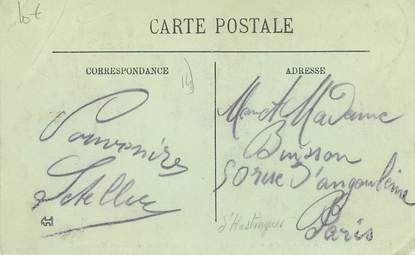 lot
CARTE POSTALE
CORRESPONDANCE
ADRESSE
Souvenirs
Letellier
M. et Madame
Buisson
50 rue d'angoulème
Paris
d'Hastingues